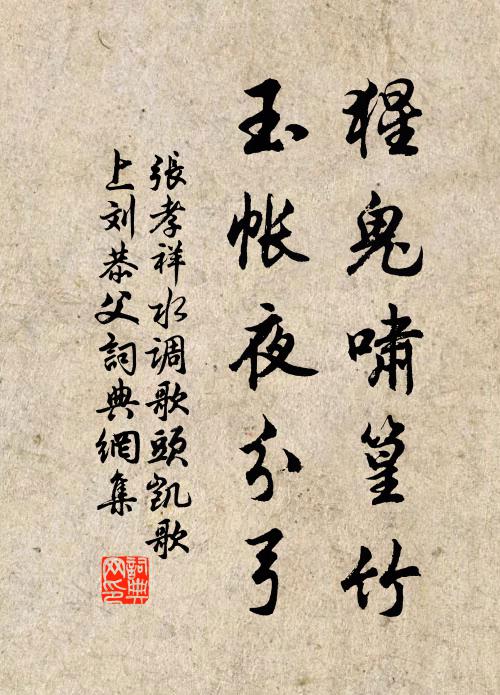 猩鬼嘯篁竹
玉帐夜分弓
張孝祥水调歌頭凯歌
上刘恭父詞典網集
詞典
网印